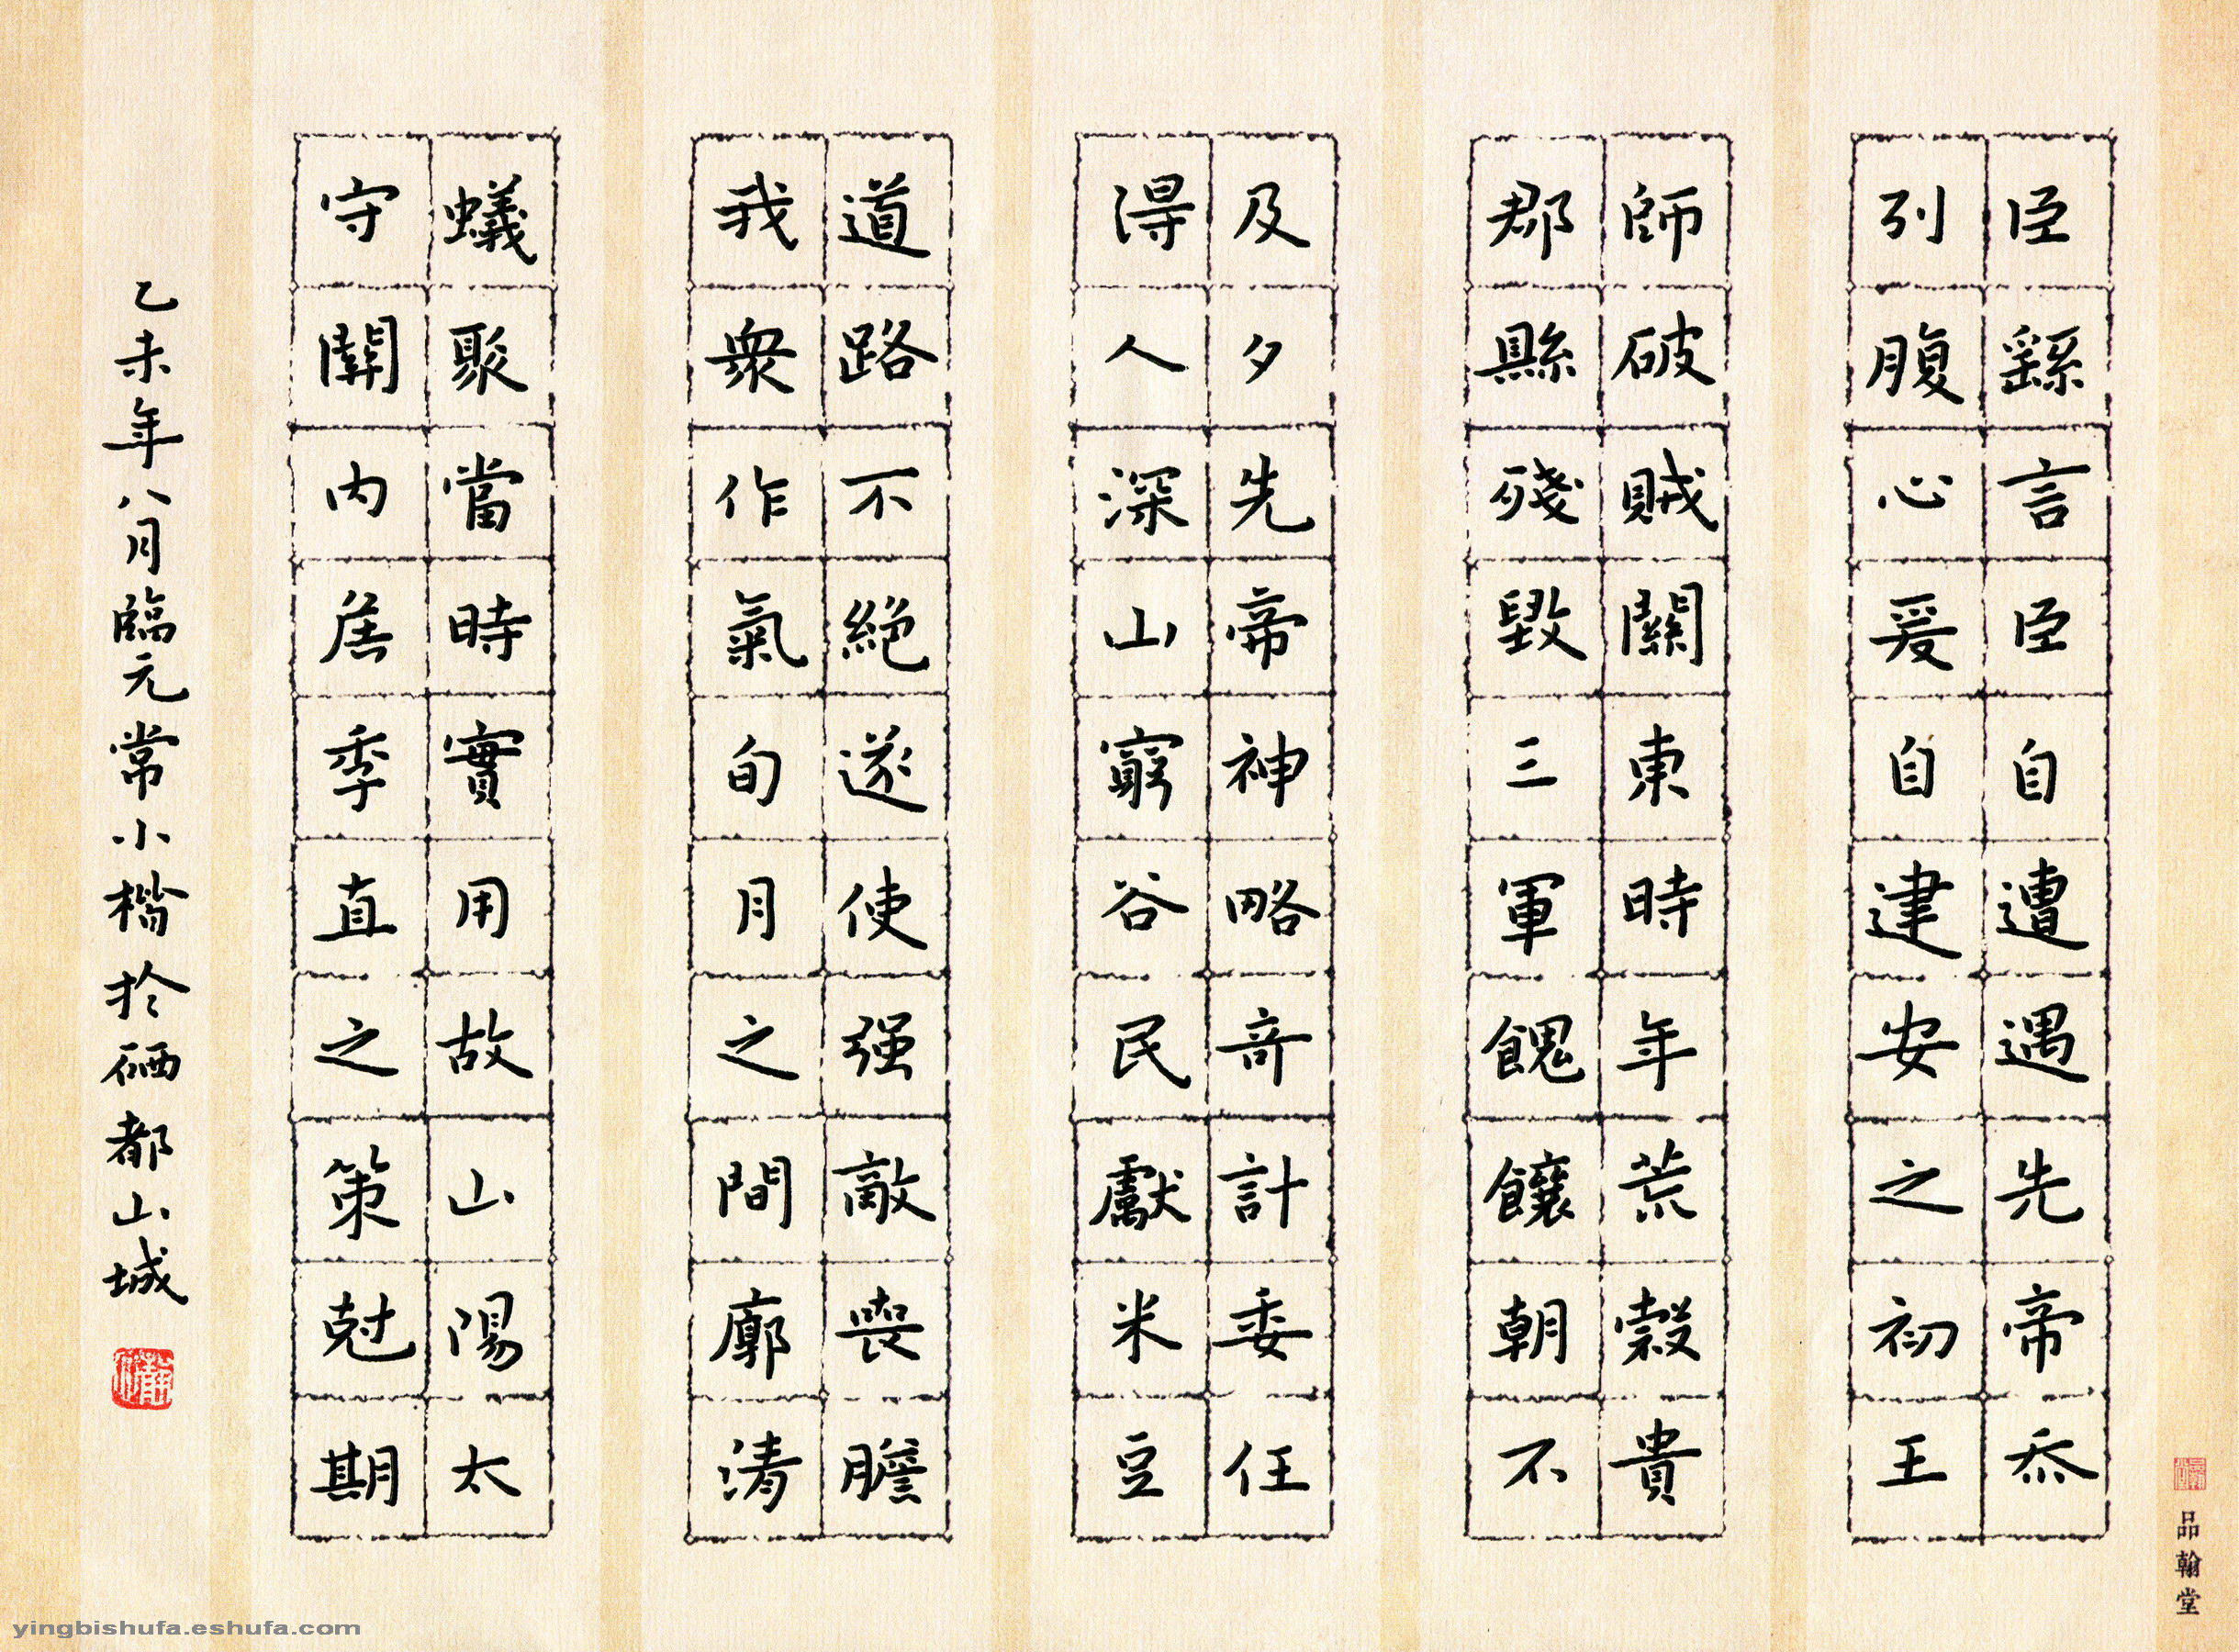 臣繇言臣自遭遇先帝忝
列腹心爰自建安之初王
師破賊關東時年荒穀貴
郡縣殘毀三軍餽饟朝不
及夕先帝神略奇計委任
得人深山窮谷民獻米豆
道路不絕遂使强敵喪膽
我衆作氣旬月之間廓清
蟻聚當時實用故山陽太
守關內侯季直之策尅期
乙未年八月臨元常小楷於硒都山城
品翰堂
yingbishufa.eshufa.com